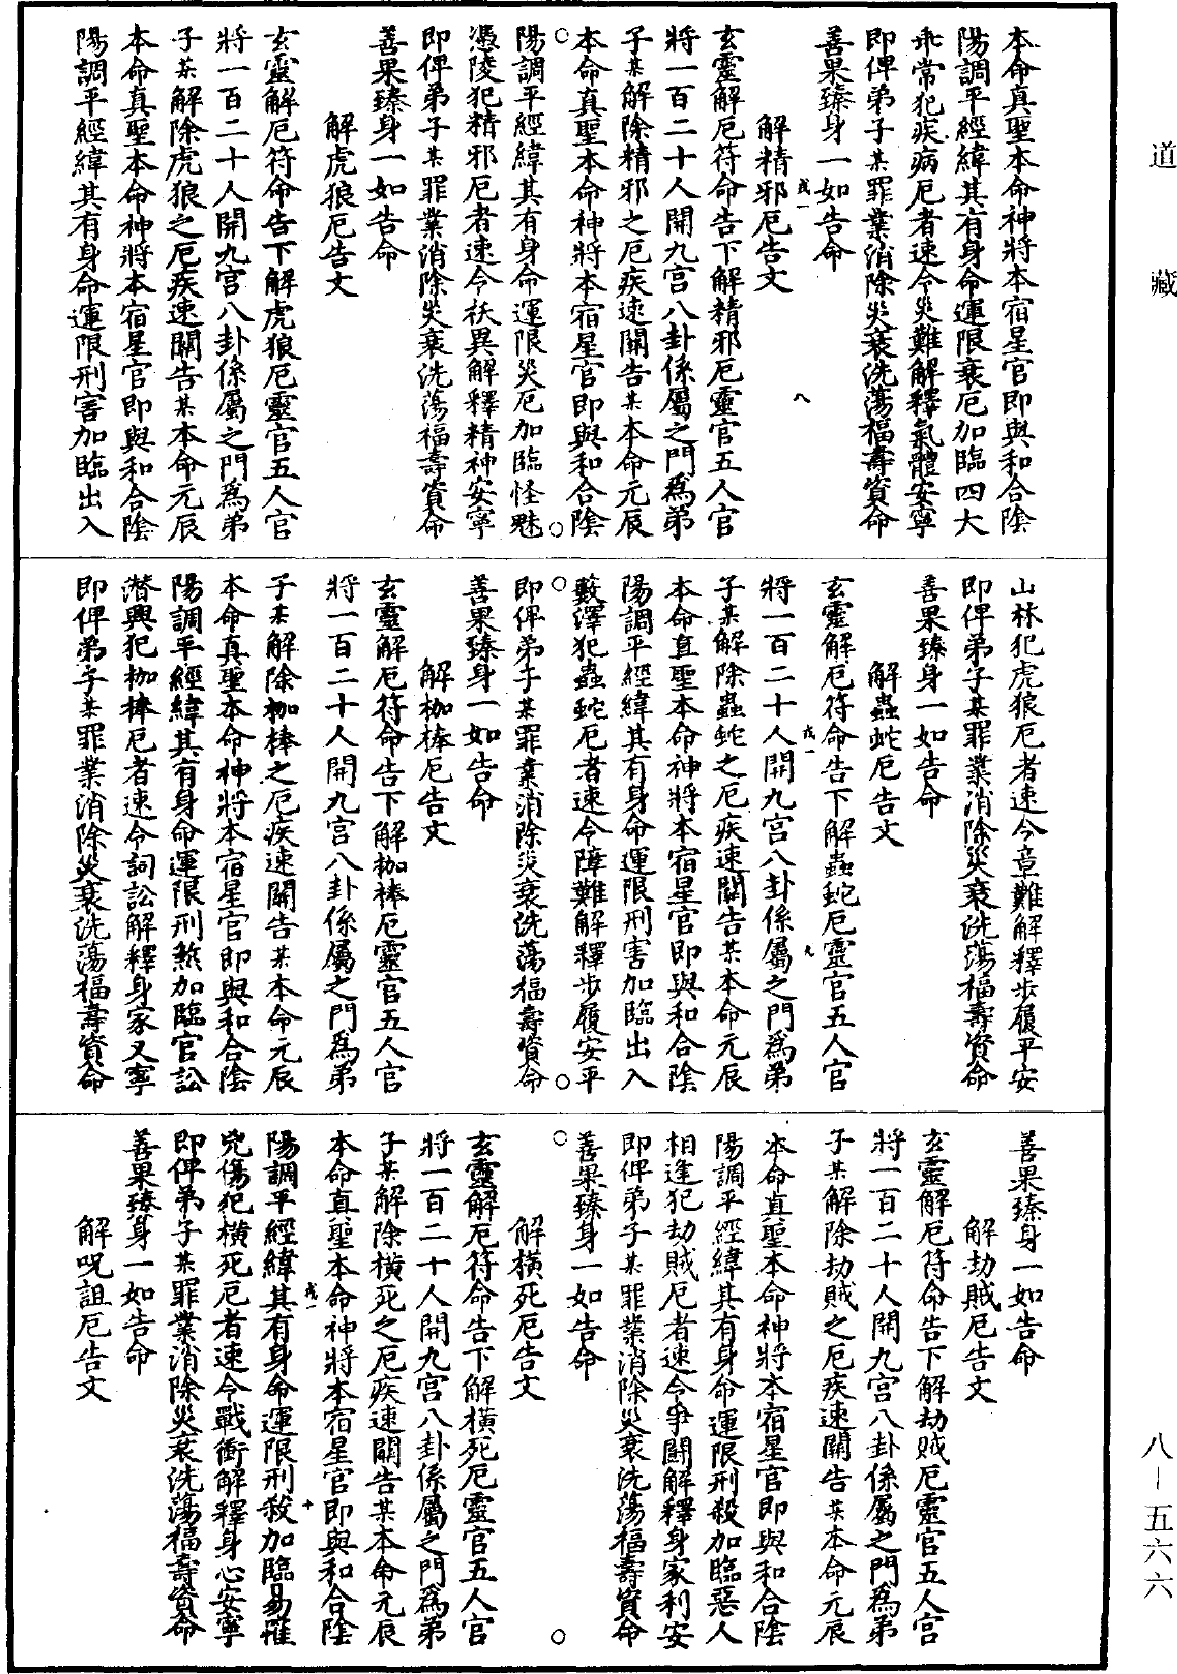 道藏
本命真聖本命神將本宿星官即與和合陰
陽調平經緯其有身命運限衰厄加臨四大
乖常犯疾病厄者速令災難解釋氣體安寧
即俾弟子某罪業消除災衰洗蕩福壽資命
善果臻身一如告命
解精邪厄告文
玄靈解厄符命告下解精邪厄靈官五人官
將一百二十人開九宮八卦係屬之門為弟
子某解除精邪之厄疾速關告某本命元辰
本命真聖本命神將本宿星官即與和合陰
陽調平經緯其有身命運限災厄加臨怪魅
憑陵犯精邪厄者速令祅異解釋精神安寧
即俾弟子某罪業消除災衰洗蕩福壽資命
善果臻身一如告命
解虎狼厄告文
玄靈解厄符命告下解虎狼厄靈官五人官
將一百二十人開九宮八卦係屬之門為弟
子某解除虎狼之厄疾速關告某本命元辰
本命真聖本命神將本宿星官即與和合陰
陽調平經緯其有身命運限刑害加臨出入
山林犯虎狼厄者速令章難解釋步履平安
即俾弟子某罪業消除災衰洗蕩福壽資命
善果臻身一如告命
解蟲蛇厄告文
玄靈解厄符命告下解蟲蛇厄靈官五人官
將一百二十人開九宮八卦係屬之門為弟
子某解除蟲蛇之厄疾速關告某本命元辰
本命真聖本命神將本宿星官即與和合陰
陽調平經緯其有身命運限刑害加臨出入
藪澤犯蟲蛇厄者速令障難解釋步履安平
即俾弟子某罪業消除災衰洗蕩福壽資命
善果臻身一如告命
解枷棒厄告文
玄靈解厄符命告下解枷棒厄靈官五人官
將一百二十人開九宮八卦係屬之門為弟
子某解除枷棒之厄疾速關告某本命元辰
本命真聖本命神將本宿星官即與和合陰
陽調平經緯其有身命運限刑煞加臨官訟
潛興犯枷棒厄者速令詞訟解釋身家乂寧
即俾弟子某罪業消除災衰洗蕩福壽資命
善果臻身一如告命
解劫賊厄告文
玄靈解厄符命告下解劫賊厄靈官五人官
將一百二十人開九宮八卦係屬之門為弟
子某解除劫賊之厄疾速關告某本命元辰
本命真聖本命神將本宿星官即與和合陰
陽調平經緯其有身命運限刑殺加臨惡人
相逢犯劫賊厄者速令爭鬪解釋身家利安
即俾弟子某罪業消除災衰洗蕩福壽資命
善果臻身一如告命
解橫死厄告文
玄靈解厄符命告下解橫死厄靈官五人官
將一百二十人開九宮八卦係屬之門為弟
子某解除橫死之厄疾速關告某本命元辰
本命真聖本命神將本宿星官即與和合陰
陽調平經緯其有身命運限刑殺加臨易罹
兇傷犯橫死厄者速令戰衝解釋身心安寧
即俾弟子某罪業消除災衰洗蕩福壽資命
善果臻身一如告命
解呪詛厄告文
八－五六六